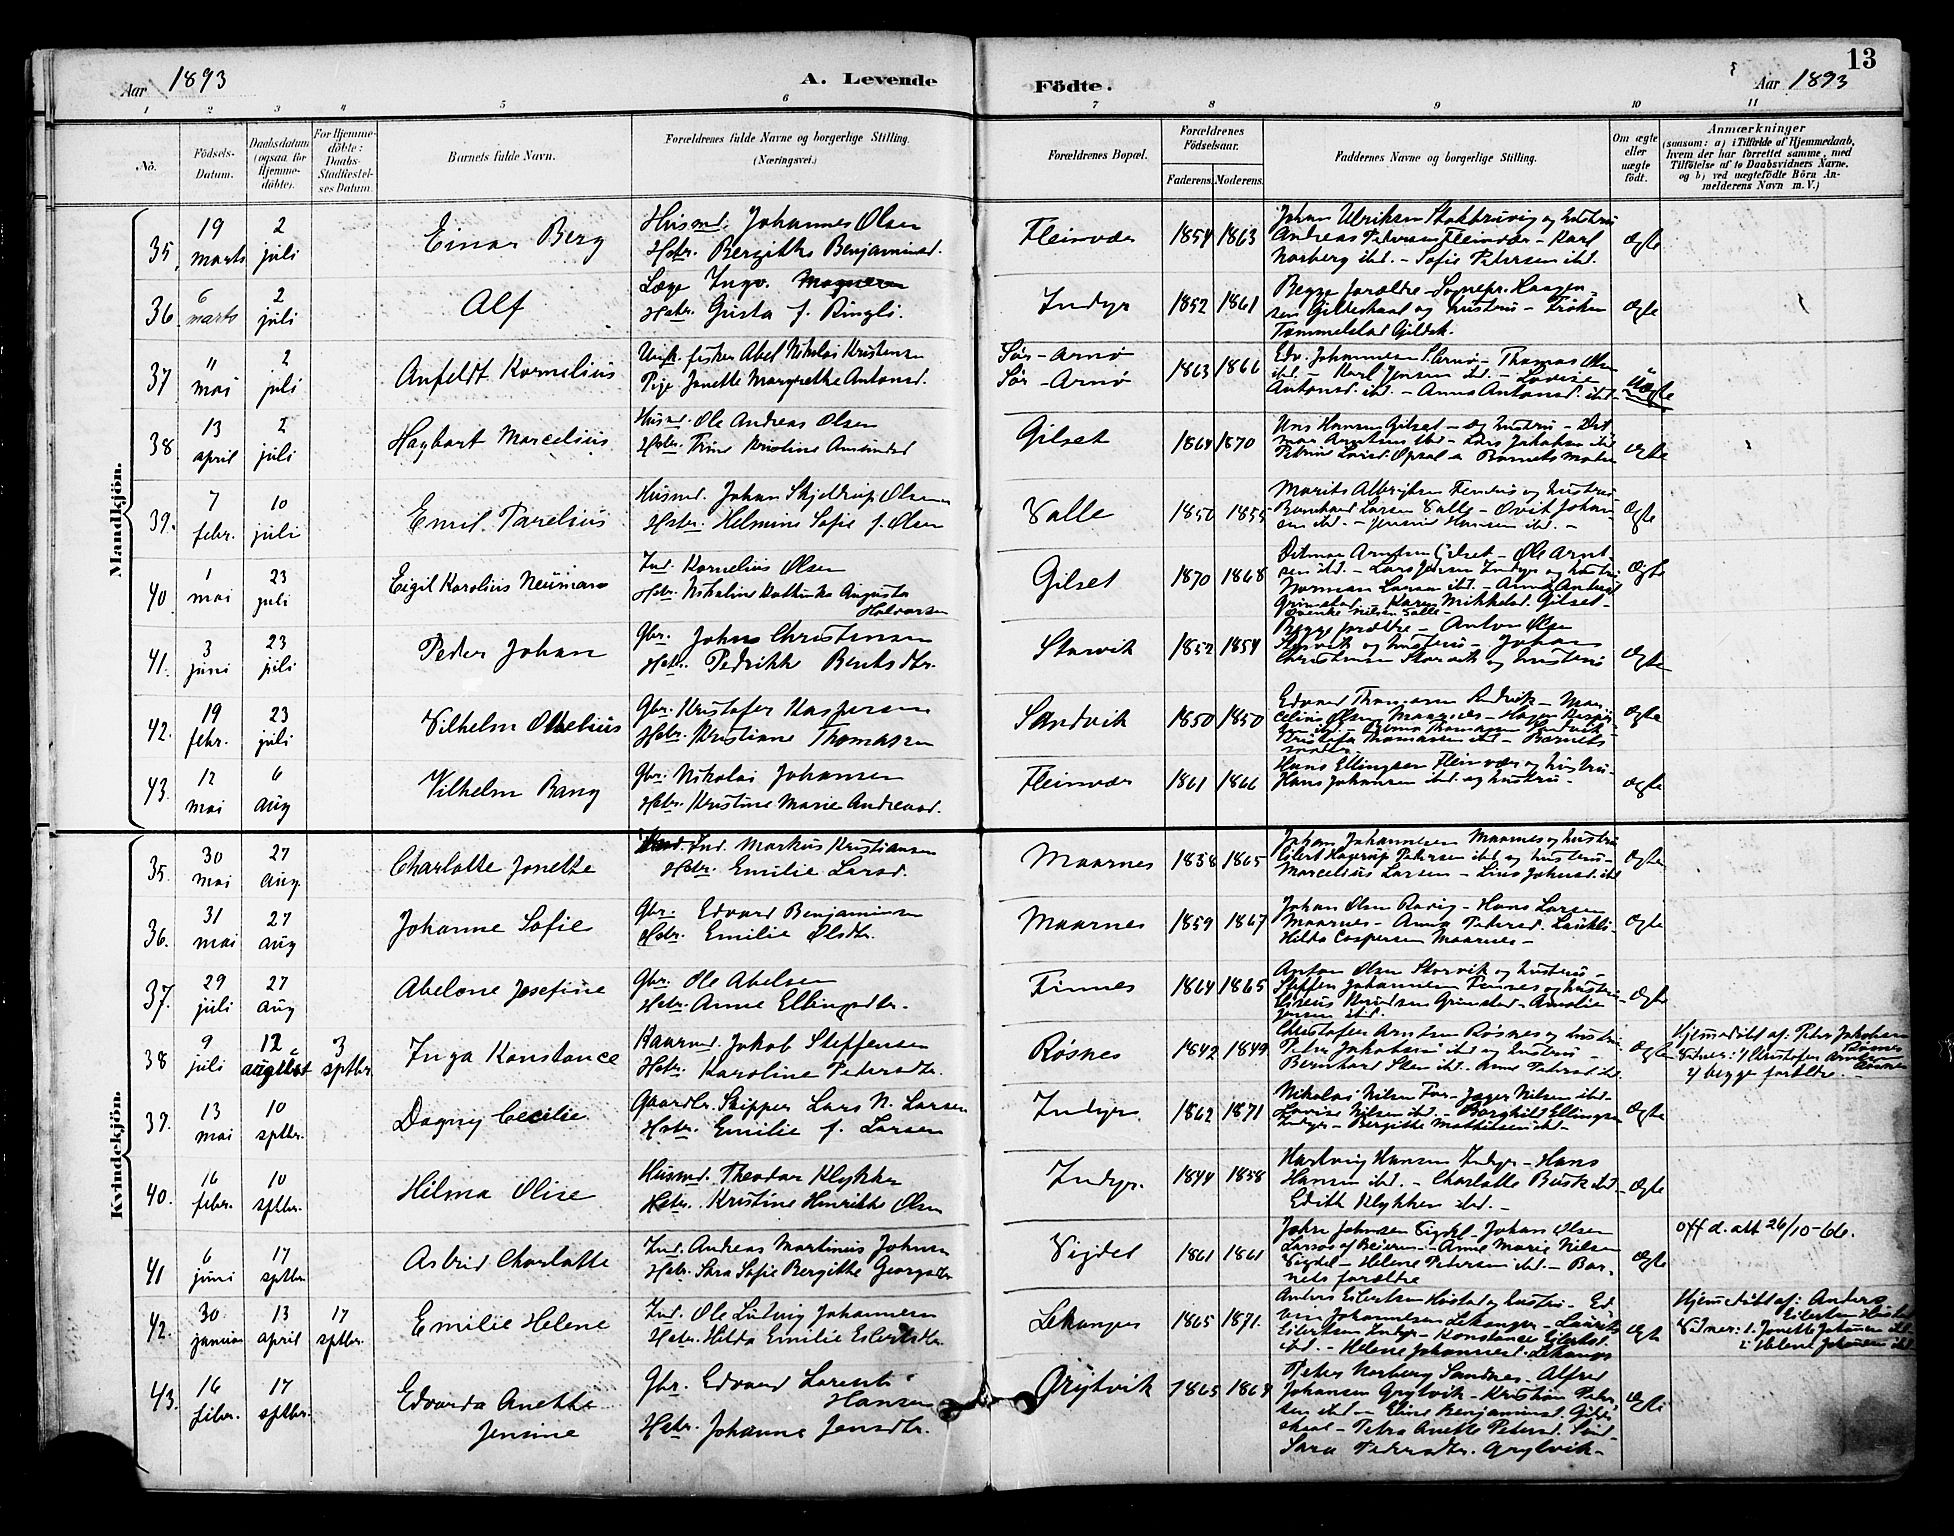 13
Aar 1893 A. Levende Födte. Aar 1893
1 2 3 4 5 6 7 8 9 10 11
No. Födsels-Datum. Daabsdatum (ogsaa for Hjemme-döbte). For Hjemme-döbte: Daabs-Stadfæstel-ses Datum. Barnets fulde Navn. Forældrenes fulde Navne og borgerlige Stilling. (Næringsvei.) Forældrenes Bopæl. Forældrenes Födselsaar. Faderens. Moderens. Faddernes Navne og borgerlige Stilling. Om ægte eller uægte födt. Anmærkninger (saasom: a) i Tilfælde af Hjemmedaab, hvem der har forrettet samme, med Tilföielse af to Daabsvidners Navne, og b) ved uægtefödte Börn An-melderens Navn m. V.)
Mandkjön.
35. 19 marts 2 juli Einar Berg Husmd. Johannes Olsen
Hstr. Bergitte Benjaminsd. Fleinvær 1854 1863 Johan Ulriksen og hustru
Andreas Petersen Fleinvær - Karl
Norberg ibd. - Sofie Petersen ibd. Ægte
36 6 marts 2 juli Alf Læge Ingv.
Hstr. Gusta f. Ringli Indyr 1852 1861 Begge forældre - Sognepr. Haagen-
sen Gildeskaal og hustru - Frøken
Gildsk. Ægte
37 11 mai 2 juli Anfeldt Kornelius Ungk. fisker Abel Nikolai Kristensen
Pige Jonette Margrethe Antonsd. Sør-Arnø
Sør-Arnø 1863 1866 Edv. Johannesen S. Arnø - Thomas Olsen
ibd. - Karl Jensen ibd. - Lovise
Antonsd. ibd. - Anna Antonsd. ibd. Uægte
38 13 april 2 juli Haybart Marcelius Husmd. Ole Andreas Olsen
Hstr. Trine Kristine Amundsd. Gilset 1864 1870 Hansen Gilset - og hustru - Dit-
mar Arntsen ibd - Lars Jakobsen ibd
Barnets moder Ægte
39. 7 febr. 10 juli Emil Parelius Husmd. Johan Skjeldrup Olsen
Hstr. Helmine Sofie f. Olsen Valle 1850 1855 Marits Albrigtsen og hustru
Bernhard Larsen Valle - Johan-
sen ibd. - Hansen ibd. - Ægte
40 1 mai 23 juli Eigil Karolius Neumann Ind. Kornelius Olsen
Hstr. Nikoline Kathinka Augusta
Halvorsen Gilset 1870 1868 Ditmar Arntsen Gilset - Ole Arnt-
sen ibd. - Lars Jensen Indyr og hustru
Norman Larsen ibd. - Anna
Grimstad - Karen Mikkelsd. Gilset -
Nilsen Valle - Ægte
41. 3 juni 23 juli Peder Johan Gbr. Johan Christensen
Hstr. Pedrikke Bentsdtr. Storvik 1852 1854 Begge forældre - Anton Olsen
Storvik og hustru - Johan
Christensen Storvik og hustru Ægte
42. 19 febr. 23 juli Vilhelm Othelius Gbr. Kristofer Kaspersen
Hstr. Kristiane Thomassen Sandvik 1850 1850 Edvard Thomassen Sandvik - Mar-
celius Olsen Maarnes -
Thomassen Sandvik -
Kristofa Thomassen ibd - Barnets
moder - Ægte
43. 12 mai 6 aug Vilhelm Bang Gbr. Nikolai Johansen
Hstr. Kristine Marie Andreasd. Fleinvær 1861 1866 Hans Ellingsen Fleinvær og hustru -
Hans Johansen ibd. og hustru - Ægte
Kvindekjön.
35. 30 mai 27 aug. Charlotte Jonette Ind. Markus Kristiansen
Hstr. Emilie Larsd. Maarnes 1838 1865 Johan Johannesen Maarnes og hustru
Eilert Hagerup Petersen ibd og hustru -
Marcelius Larsen - Lina Johnsd. ibd Ægte
36. 31 mai 27 aug Johanne Sofie Gbr. Edvard Benjaminsen
Hstr. Emilie Olsdtr. Maarnes 1859 1867 Johan Olsen - Hans Larsen
Maarnes - Anna Petersd.
Hilda Caspersen Maarnes - Ægte
37. 29 juli 27 aug Abelone Josefine Gbr. Ole Abelsen
Hstr. Anne Ellingsdtr. Finnes 1864 1865 Anton Olsen Storvik og hustru -
Steffen Johannesen Finnes og hustru
Knudsen Grimstad - Amalie
Jensen ibd. Ægte
38 9 juli 12 august 3 sptbr. Inga Konstance Kaarmd. Jakob Steffensen
Hstr. Karoline Pedersdtr. Røsnes 1842 1849 Christofer Arntsen Røsnes og hustru
Peter Jakobsen ibd og hustru -
Bernhard Steen ibd. Anne Petersd ibd. Ægte Hjemmedøbt af: Peter Jakobsen
Røsnes
Vidner: 1/ Kristofer Arntsen Røsnes
2/ begge forældre. -
39. 13 mai 10 sptbr. Dagny Cecilie Gaardbr. Skipper Lars N. Larsen
Hstr. Emilie f. Larsen Indyr 1862 1871 Nikolai Nilsen For - Jæger Nilsen ibd -
Lovise Nilsen ibd. - Borghild Ellingsen
Indyr - Bergitte Mathilsen ibd. Ægte
40. 16 febr. 10 sptbr. Hilma Olise Husmd. Theodor Klykken
Hstr. Kristine Henrikke Olsen Indyr. 1844 1858 Hartvig Hansen Indyr - Hans
Hansen ibd. - Charlotte Busk ibd
Edith Klykken ibd. - Ægte
41 6 juni 17 sptbr. Astrid Charlotte Ind. Andreas Martinus Johnsen
Hstr. Sara Sofie Bergitte Georgsdtr Vigdel 1861 1861 John Johnsen Vigdel - Johan Olsen
Larsos af Beieren - Anne Marie Nilsen
Vigdel - Helene Petersen ibd. - Bar-
nets forældre Ægte off d. att 26/10-66.
42. 30 januar 13 april 17 sptbr. Emilie Helene Ind. Ole Ludvig Johannesen
Hstr. Hilda Emilie Eilertsdtr Lekanger 1865 1871. Anders Eilertsen Høstad og hustru - Ed-
vin Johannesen Lekanger - Laurits
Eilertsen Indyr - Konstanse Eilertsd.
ibd. - Helene Johannesd. Lekanger Ægte Hjemmedøbt af: Anders
Eilertsen Høstad
Vidner: 1. Jonette Johansen ibd.
2. Helene Johansen ibd.
43. 16 febr. 17 sptbr. Edvarda Anette
Jensine Gbr. Edvard Lorents
Hansen
Hstr. Johanne Jensdtr. Grytvik 1865 1864 Peter Norberg Sandnes - Alfred
Johansen Grytvik - Kristian Peter-
sen ibd - Eline Benjaminsd. Gilde-
skaal - Petra Anette Petersd. Sund
Sara Pedersdtr. Grytvik - Ægte